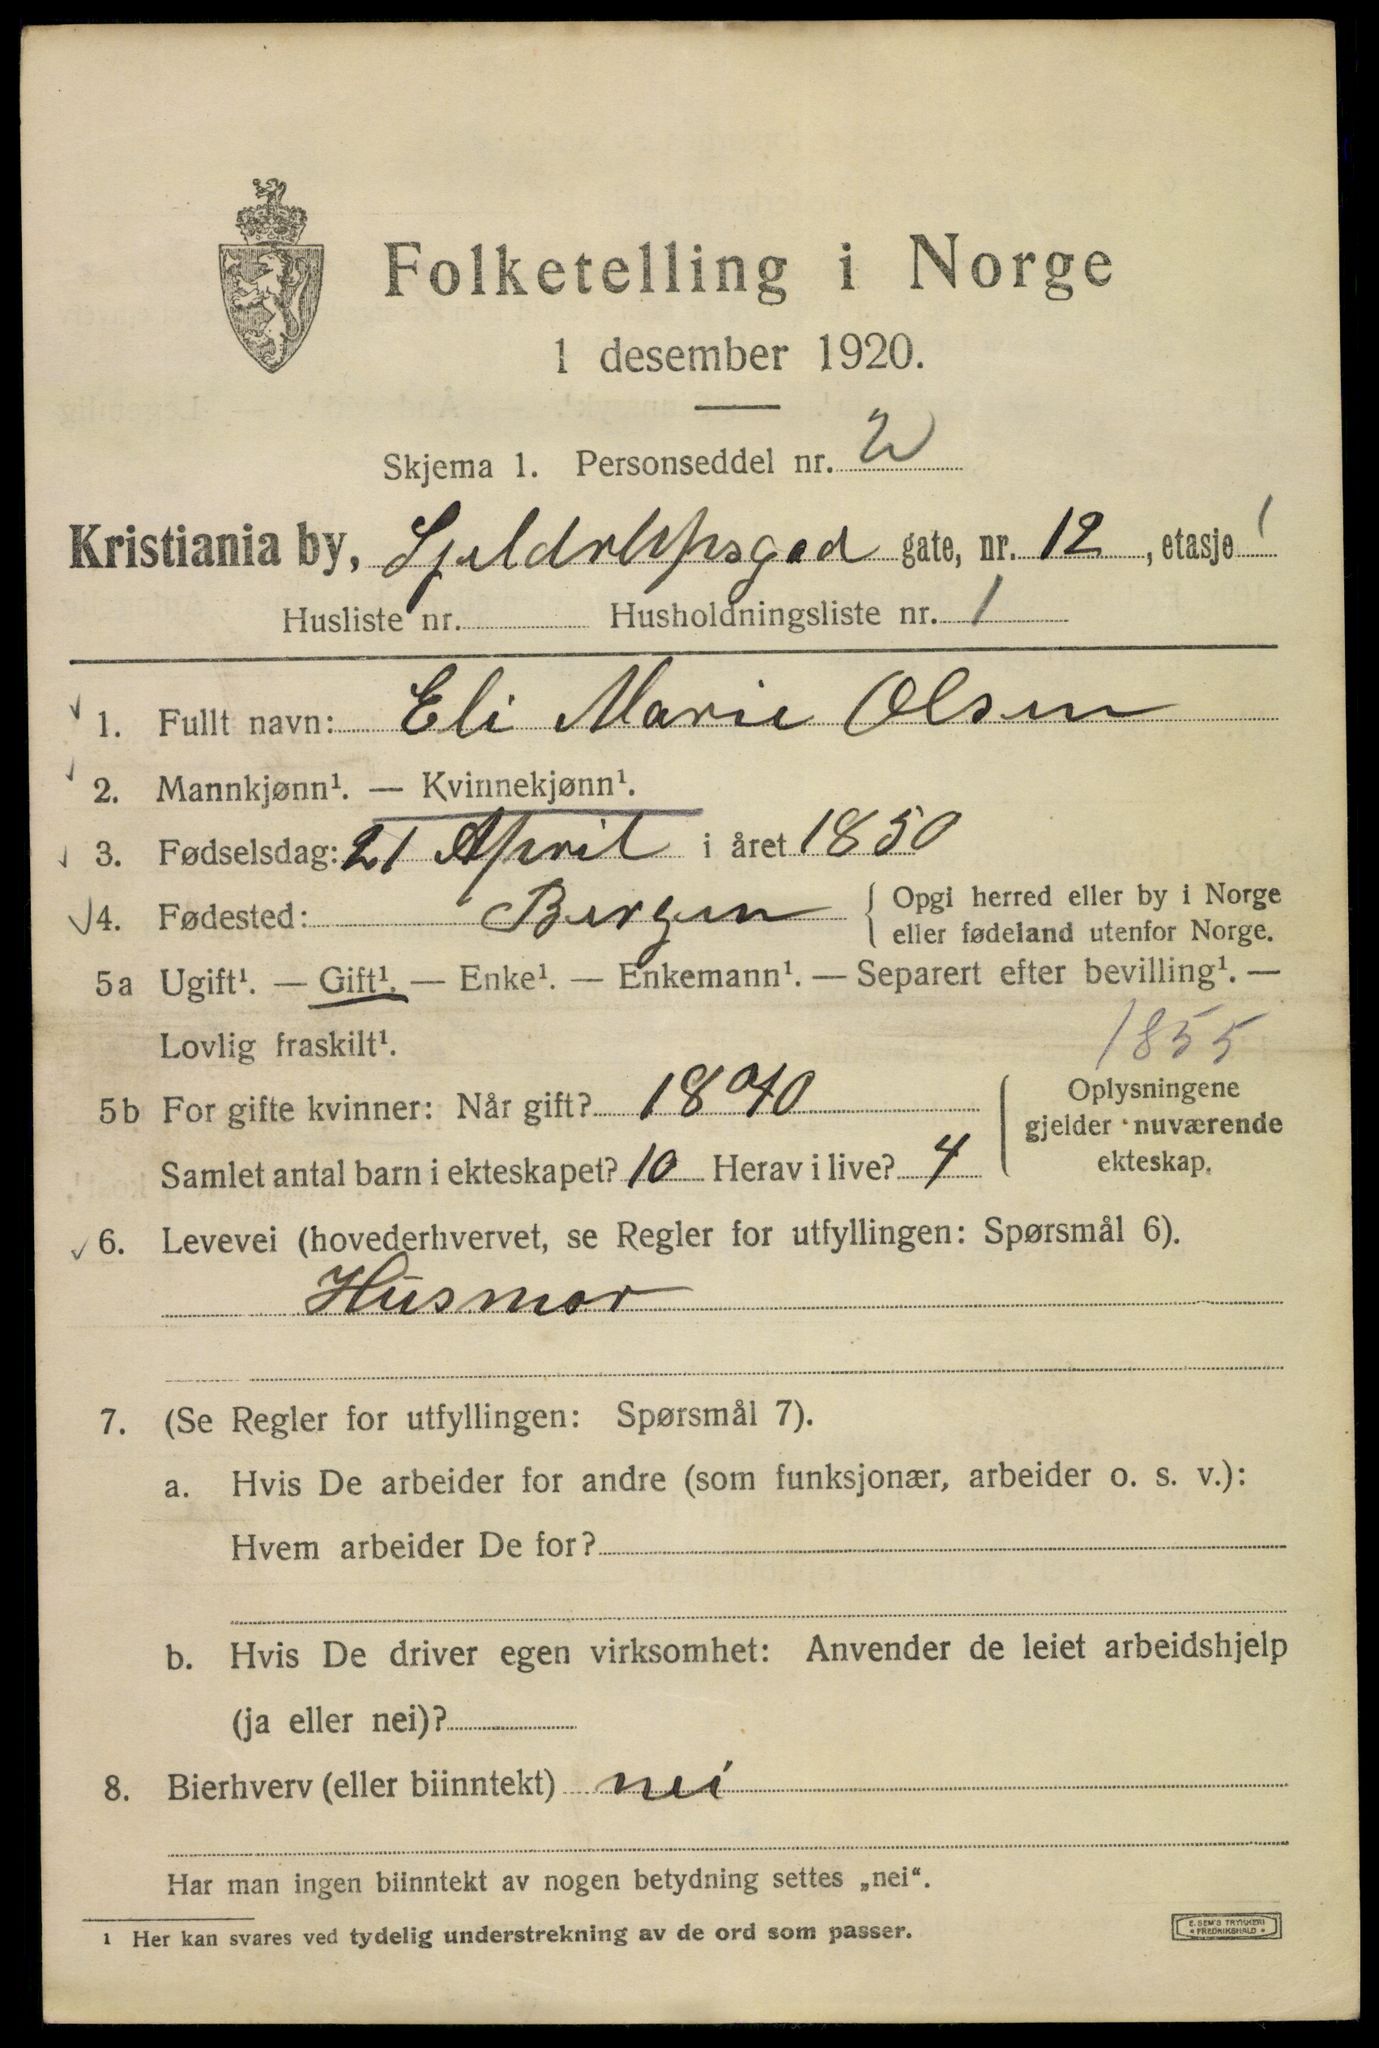 Folketelling i Norge
1 desember 1920.
Skjema 1. Personseddel nr. 2
Kristiania by, gate, nr. 12, etasje 1
Husliste nr. Husholdningsliste nr. 1
1. Fullt navn: Eli Marie Olsen
2. Mannkjønn¹. — Kvinnekjønn¹.
3. Fødselsdag: 21 April i året 1850
4. Fødested: Bergen { Opgi herred eller by i Norge
eller fødeland utenfor Norge.
5a Ugift¹. — Gift¹. — Enke¹. — Enkemann¹. — Separert efter bevilling¹. —
Lovlig fraskilt¹. 1855
5b For gifte kvinner: Når gift?
Samlet antal barn i ekteskapet? 10 Herav i live? 4
Oplysningene
gjelder nuværende
ekteskap.
6. Levevei (hovederhvervet, se Regler for utfyllingen: Spørsmål 6).
Husmor
7. (Se Regler for utfyllingen: Spørsmål 7).
a. Hvis De arbeider for andre (som funksjonær, arbeider o. s. v.):
Hvem arbeider De for?
b. Hvis De driver egen virksomhet: Anvender de leiet arbeidshjelp
(ja eller nei)?
8. Bierhverv (eller biinntekt) nei
Har man ingen biinntekt av nogen betydning settes „nei“.
1 Her kan svares ved tydelig understrekning av de ord som passer.
E. SEM'S TRYKKERI
FREDRIKSHALD